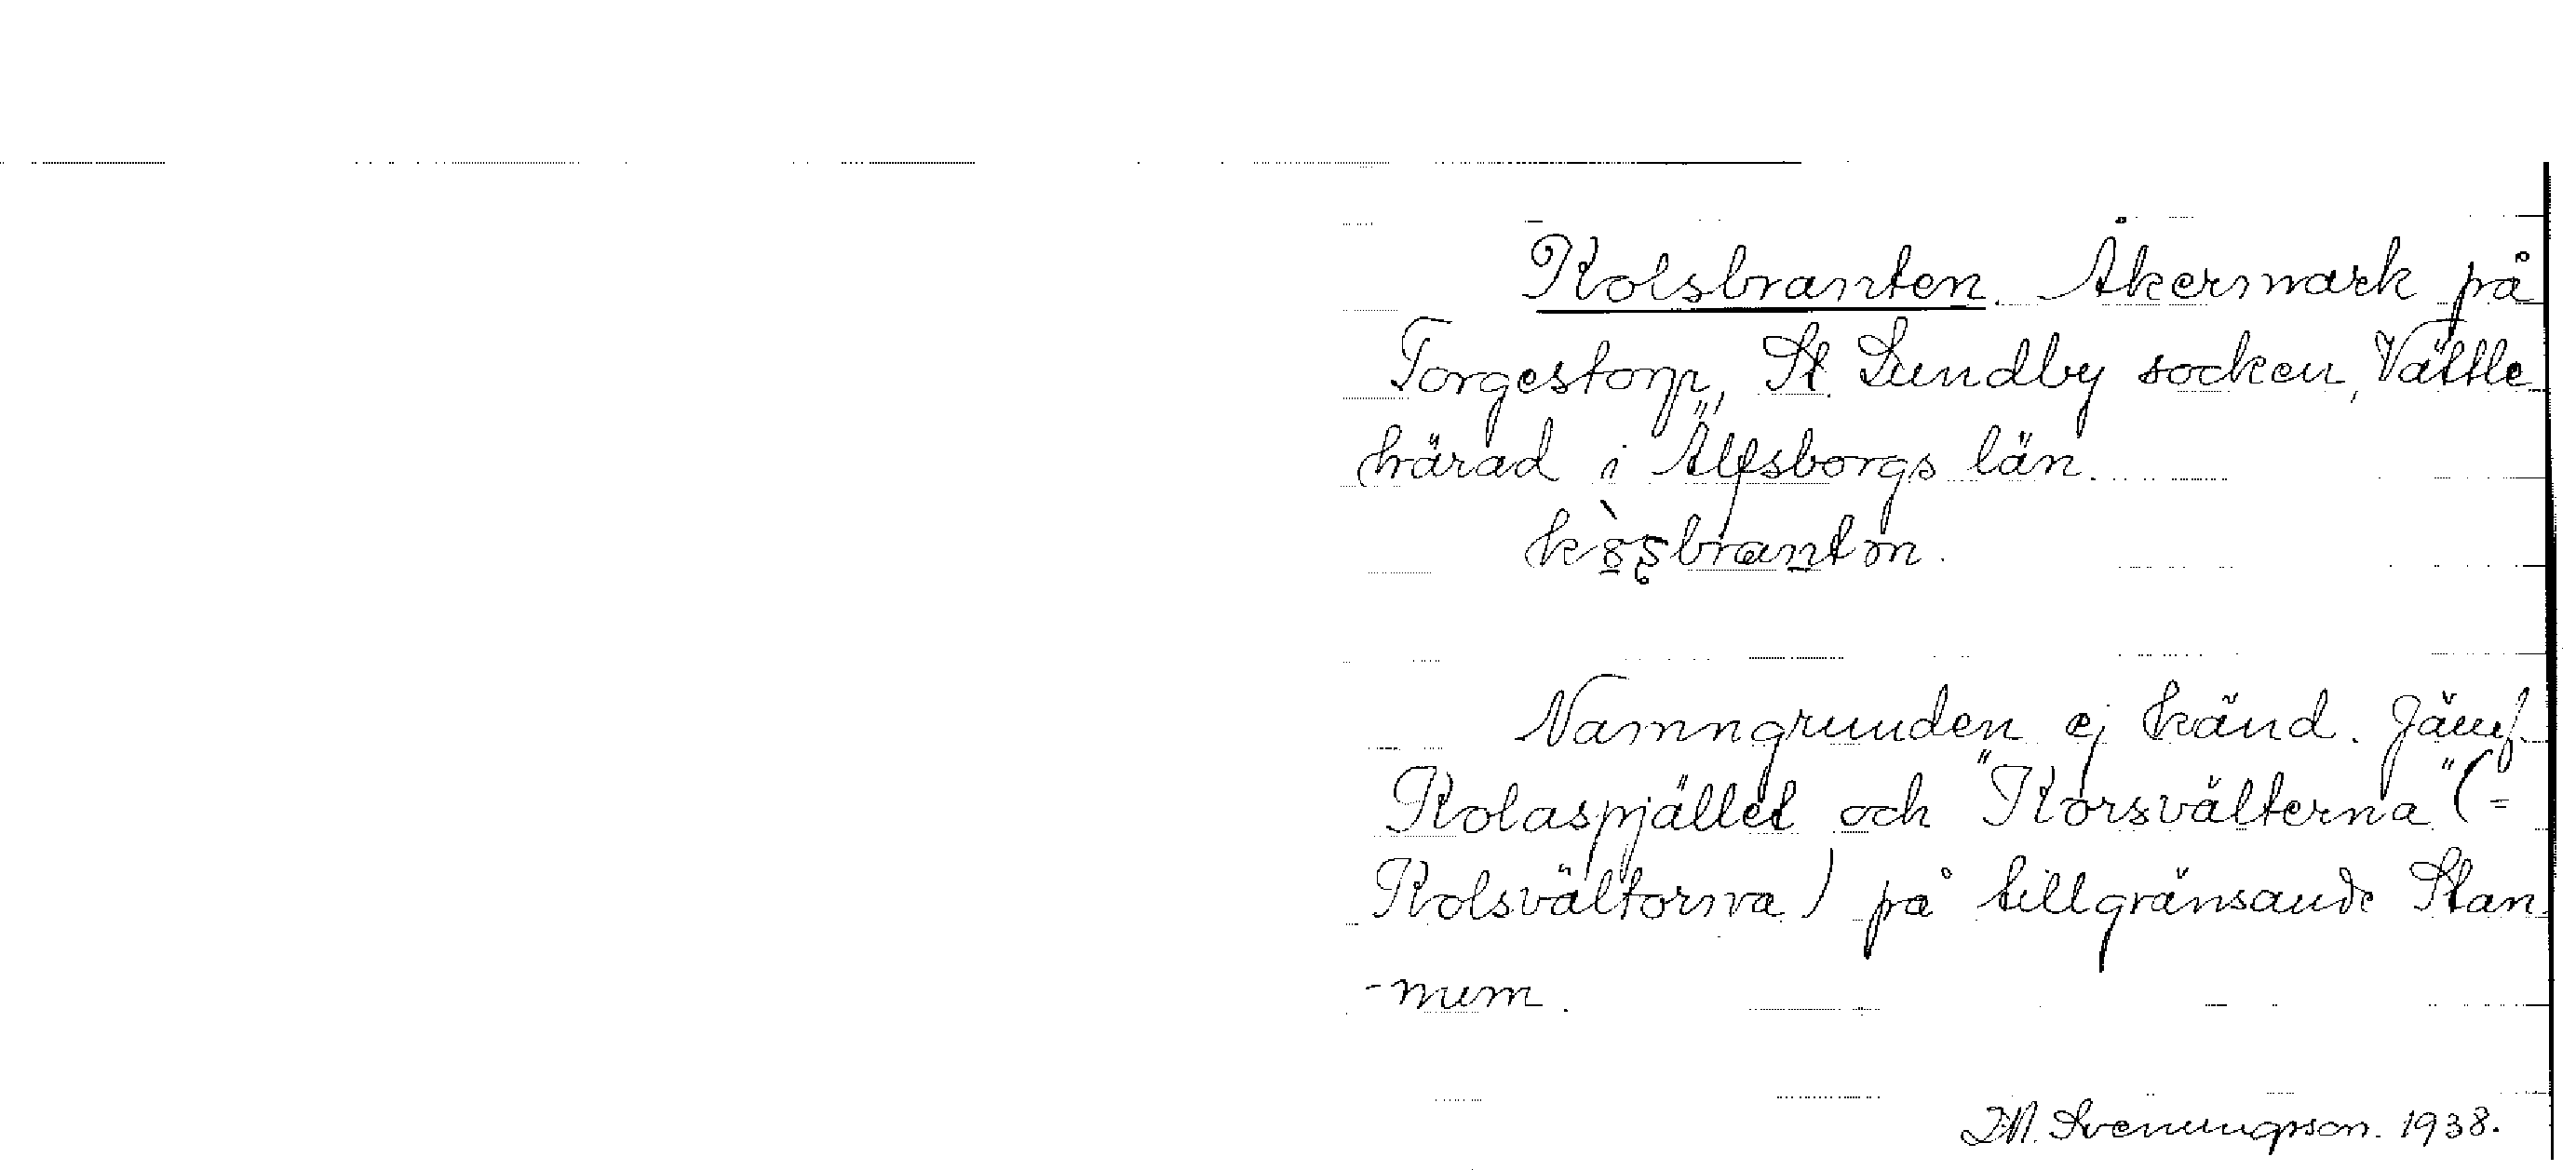 Kolsbranten. Åkermark på
Torgestorp, St. Lundby socken, Vättle
härad i Älfsborgs län.
Namngrunden ej känd. Jämf.
Kolaspjället och "Korsvälterna" (=
Kolsvältorna) på tillgränsande Stan
-num.
Svenungsson. 1938.